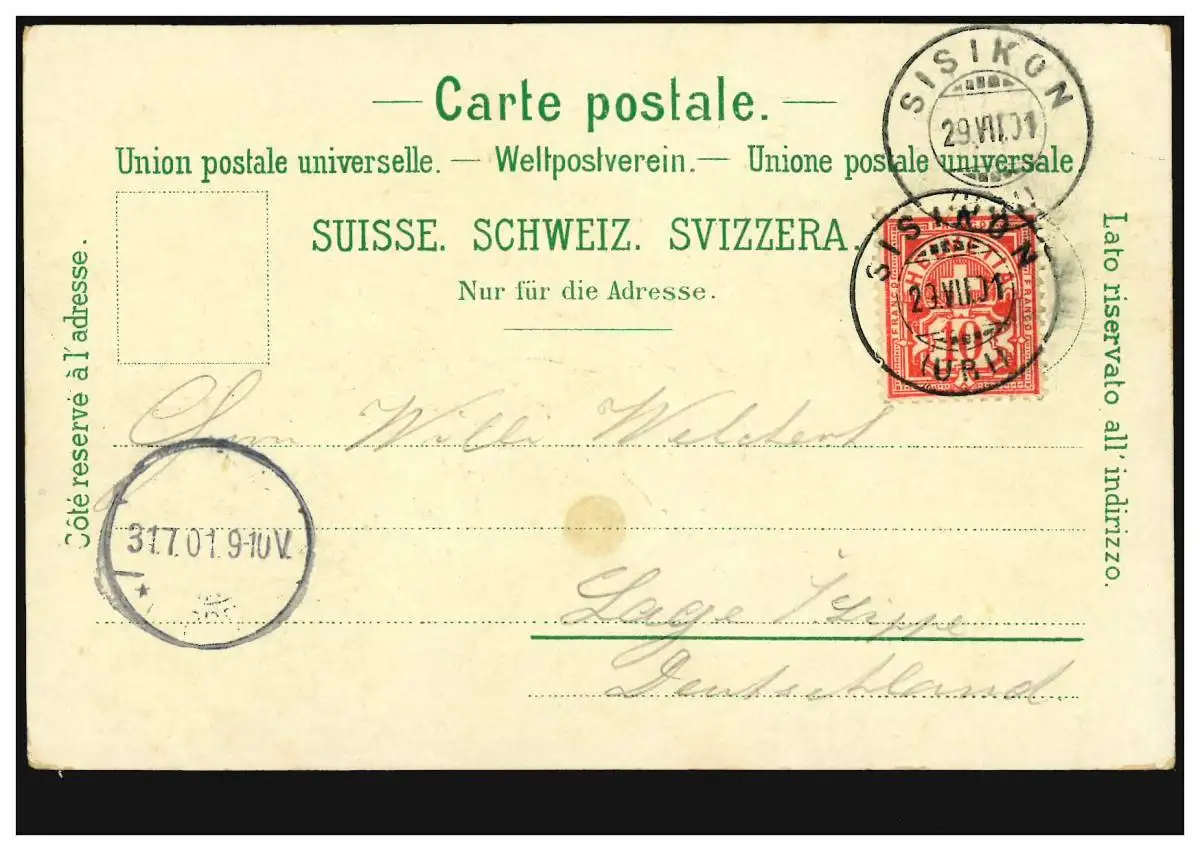 — Carte postale. —
Union postale universelle. — Weltpostverein. — Unione postale universale
SUISSE. SCHWEIZ. SVIZZERA.
Nur für die Adresse.
Côté reservé à l'adresse.
Lato riservato all'indirizzo.
SISIKON
29.VII.01
(URI)
SISIKON
29.VII.01
(URI)
HELVETIA
FRANCO
FRANCO
10
Herrn Willi Welchert
Lage /Lippe
Deutschland.
31.7.01.9-10V.